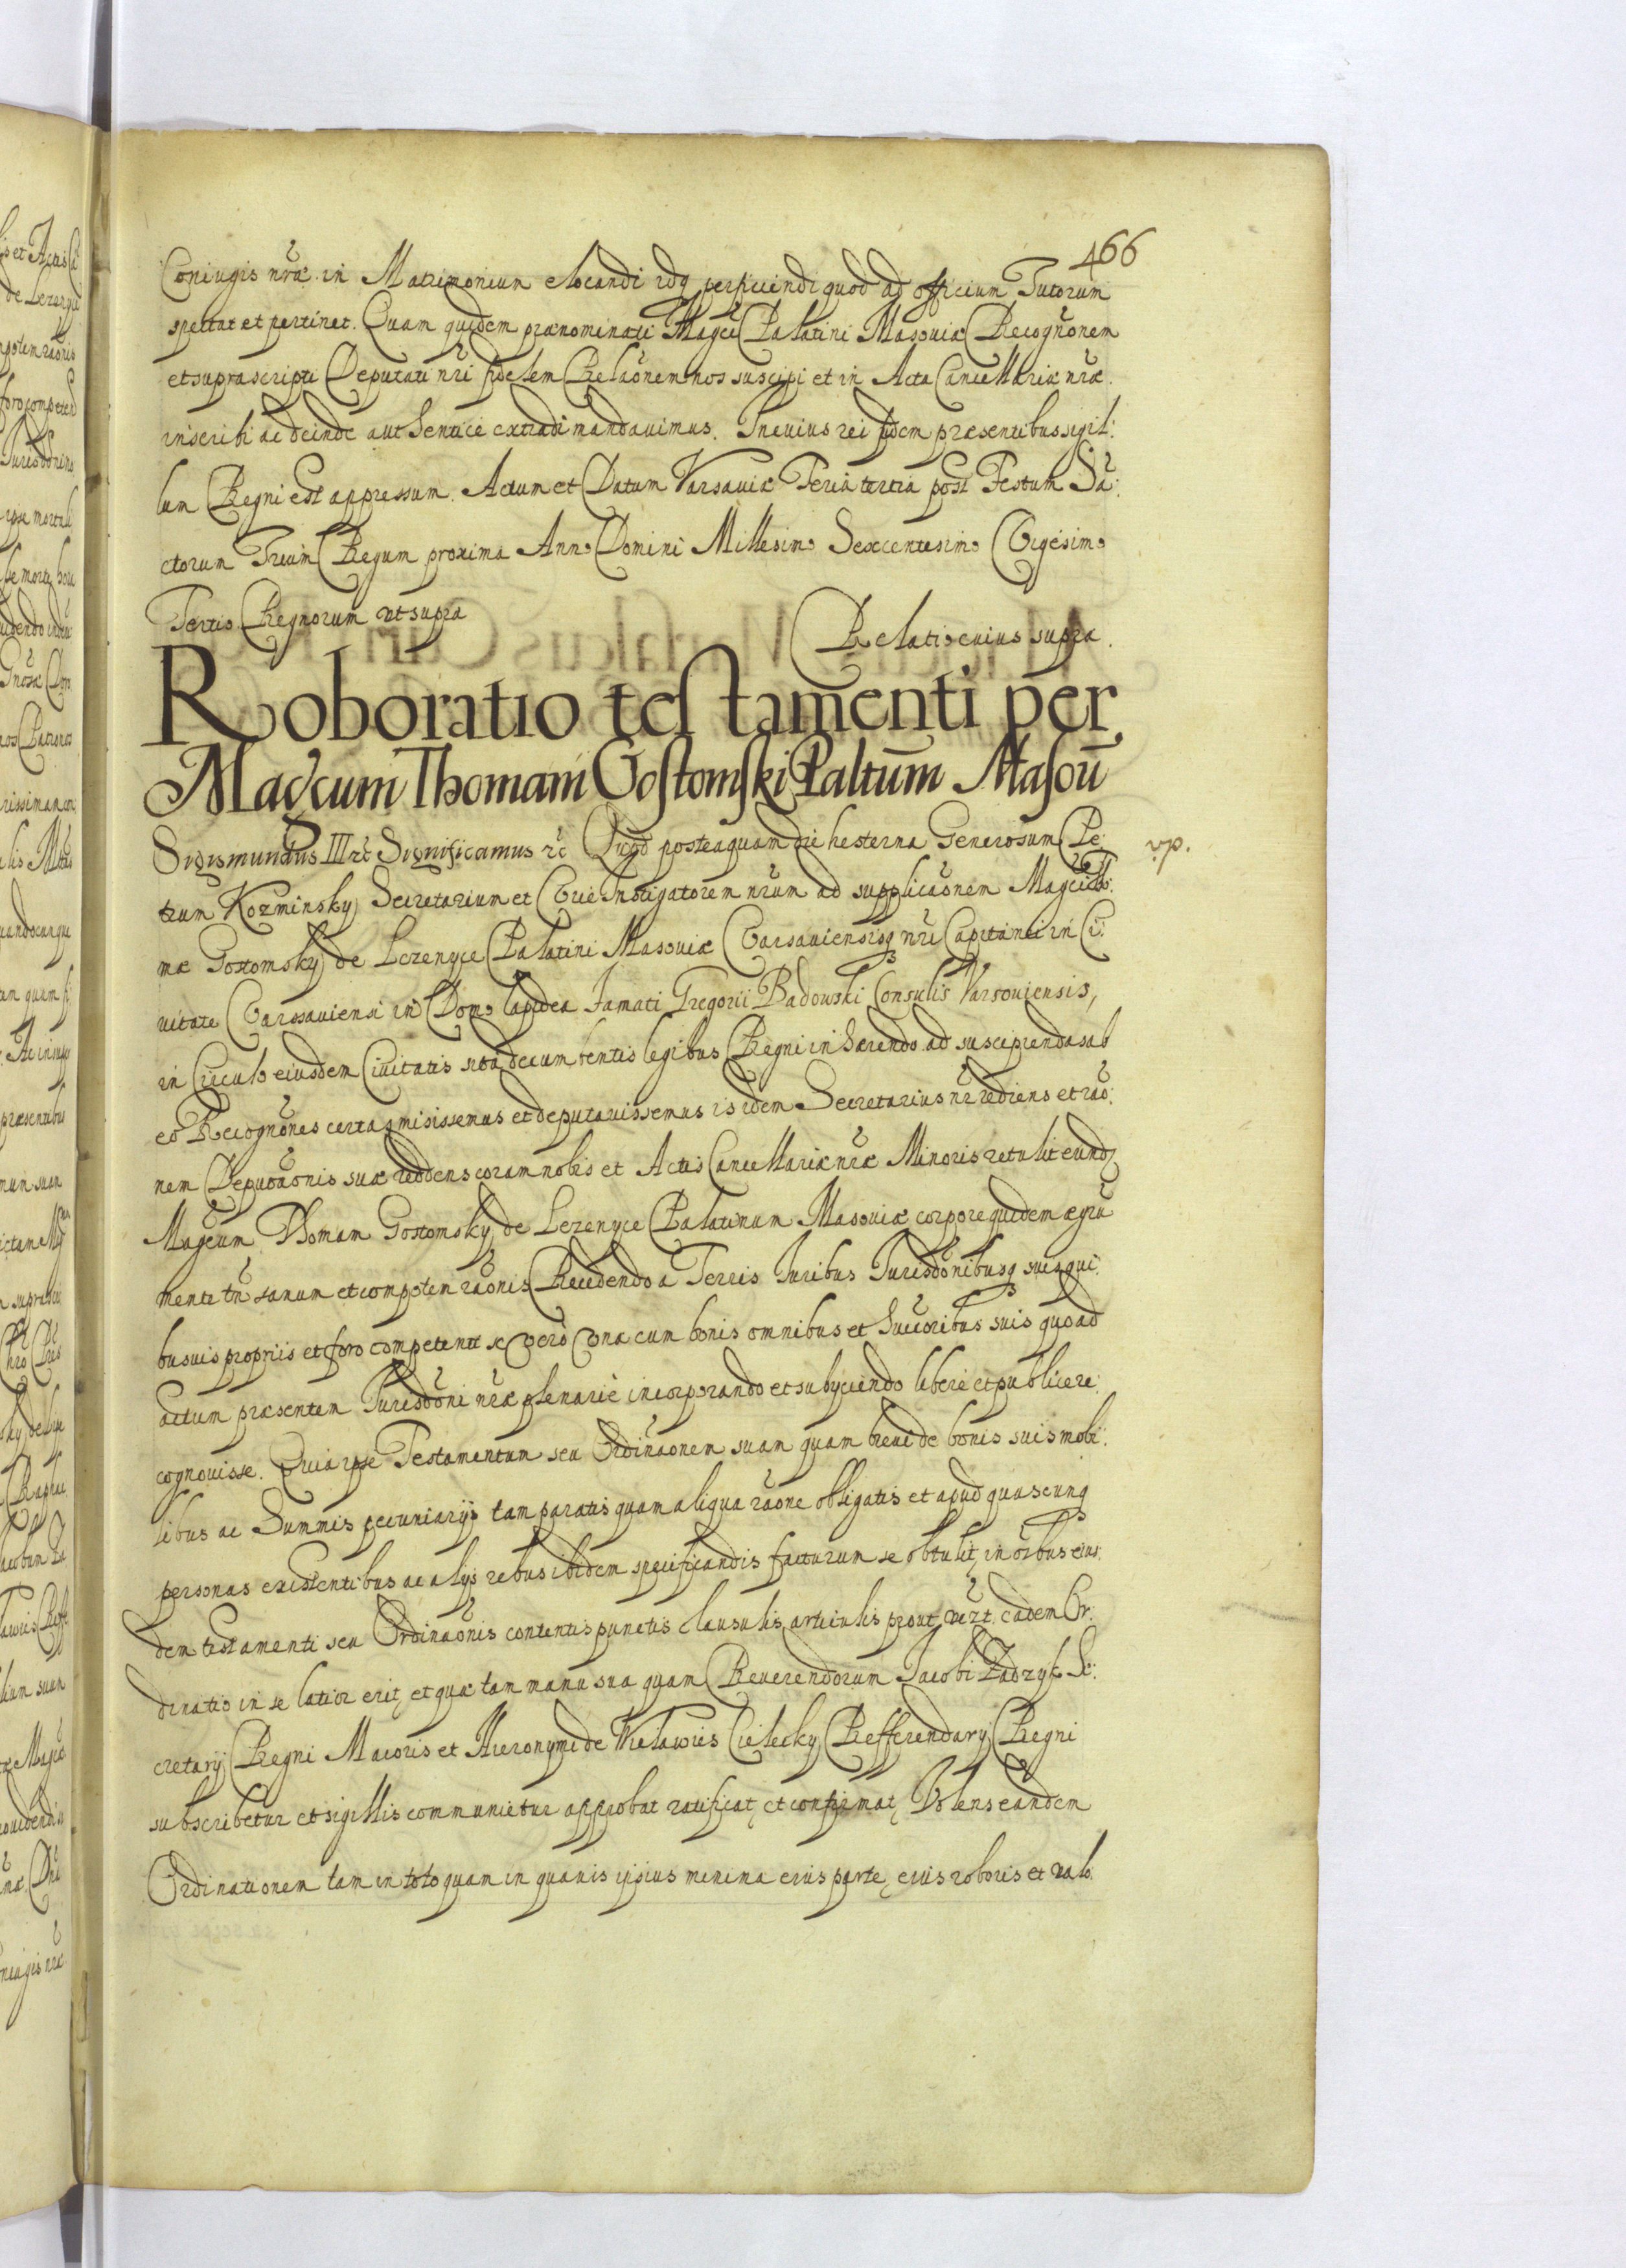 466
Coniugis nr̃ae in Matrimonium elocandi idq̃ perficiendi quod ad officium Tutorum
spectat et pertinet. Quam quidem praenominati Magc̃i Palatini Masouiae Recognõnem
et suprascripti Deputati nr̃i fidelem Relaõnem nos suscipi et in Acta Cancellariae nr̃ae
inscribi ac deinde authentice extradi mandauimus. In cuius rei fidem praesentibus sigil:
lum Regni est appressum. Actum et Datum Varsauiae Feria tertia post Festum Sã:
ctorum Trium Regum proxima Anno Domini Millesimo Sexcentesimo Vigesimo
Tertio Regnorum ut supra
Relatio cuius supra.
Roboratio testamenti per
Magcum Thomam Gostomski Paltum̃ Masoũ
Sigismundus III rc̃ Significamus rc̃ Quod posteaquam die hesterna Generosum Pe:
vp.
trum Kozminsky Secretarium et Curiae Instigatorem nr̃um ad supplicaõnem Magci Tho:
mae Gostomsky de Lezenyce Palatini Masouiae Varsauiensisq̃ nr̃i Capitanei in Ci:
uitate Varsauiensi in Domo lapidea famati Gregorii Badowski Consulis Varsouiensis,
in Circulo eiusdem Ciuitatis sita decumbentis legibus Regni inhaerendo ad suscipiendas ab
eo Recognões certas misissemus et deputauissemus is idem Secretarius nr̃ rediens et raõ:
nem Deputaõnis suae reddens coram nobis et Actis Cancellariae nr̃ae Minoris retulit eund̃
Magc̃um Thomam Gostomsky de Lezenyce Palatinum Masouiae corpore quidem aegrũ
mente tñ sanum et compotem raõnis Recedendo a Terris Iuribus Iurisdõnibusq̃ suis qui:
busuis propriis et foro competenti se vero vna cum bonis omnibus et Succõribus suis quoad
actum praesentem Iurisdõni nr̃ae plenarie incorporando et subyciendo libere et publice re:
cognouisse. Quia ipse Testamentum seu Ordinaõnem suam quam breui de bonis suis mobi:
libus ac Summis pecuniarijs tam paratis quam aliqua raõne obligatis et apud quascunq̃
personas existentibus ac alys rebus ibidem specificandis facturum se obtulit, in oĩbus eius:
dem testamenti seu Ordinaõnis contentis punctis clausulis articulis prout eadem Or:
dinatio in se latior erit, et quae tam manu sua quam Reuerendorum Jacobi Zadzyk Se:
cretarij Regni Maioris et Hieronymi de Wielawies Cielecky Refferendary Regni
subscribetur et sigillis communietur approbat ratificat, et confirmat, Volens eandem
Ordinationem tam in toto quam in quauis ipsius minima eius parte, eius roboris et valo: